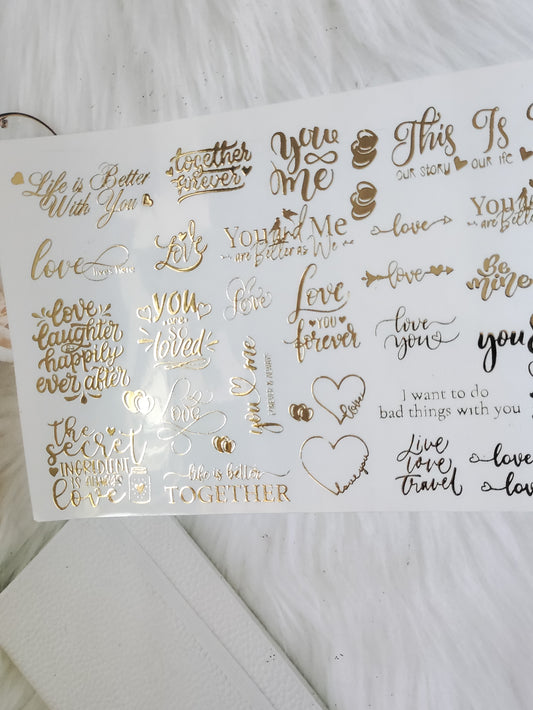 Life is Better
With You
together
forever
You
∞
me
This
our story
Is
our life
love
lives here
Love
You and Me
are Better as We
love
You
are Better
love
Be
mine
love
laughter
& happily
ever after
you
are
loved
Love
Love
you
forever
love
you
you
you & me
forever & always
love
I want to do
bad things with you
the
secret
ingredient
is always
love
life is better
TOGETHER
love you
Live
love
travel
love
love